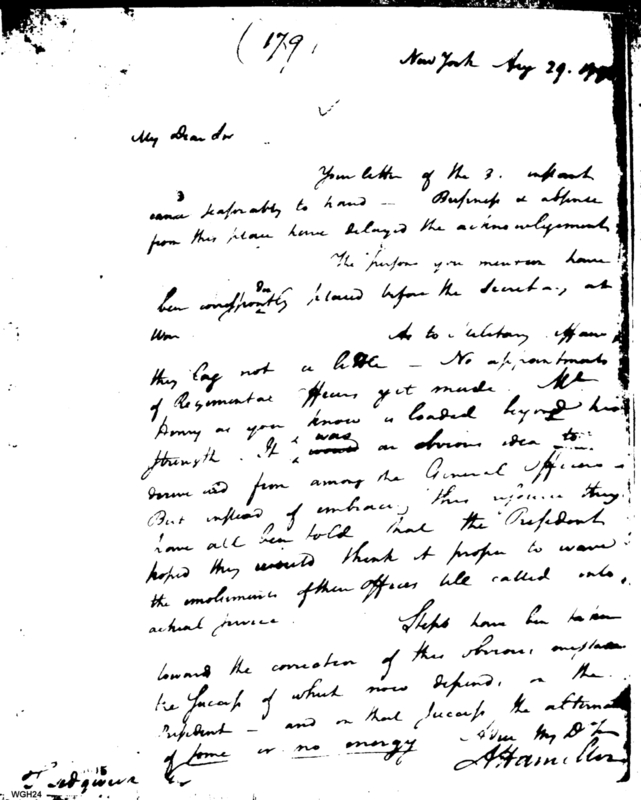 (179)
New York Aug 29. 179
My Dear Sir
Your letter of the 3. instant
came seasonably to hand — Business & absence
from this place have delayed the acknowlegement
The persons you mention have
been placed before the Secretary at
War As to Military affairs
they lag not a little — No appointments
of Regimental Officers yet made. Mc
Henry as you know is loaded beyond his
strength. It was an obvious idea to
derive aid from among the General Officers —
But instead of embracing this they
have all been told that the President
hoped they would think it proper to wave
the emoluments of their Offices till called into
actual service. Steps have been taken
toward the correction of this obvious mistake
the success of which now depends on the
President — and on that success the alternative
of some or no energy Adieu My D Sir
A Hamilton
T Sedgwick Es
WGH24